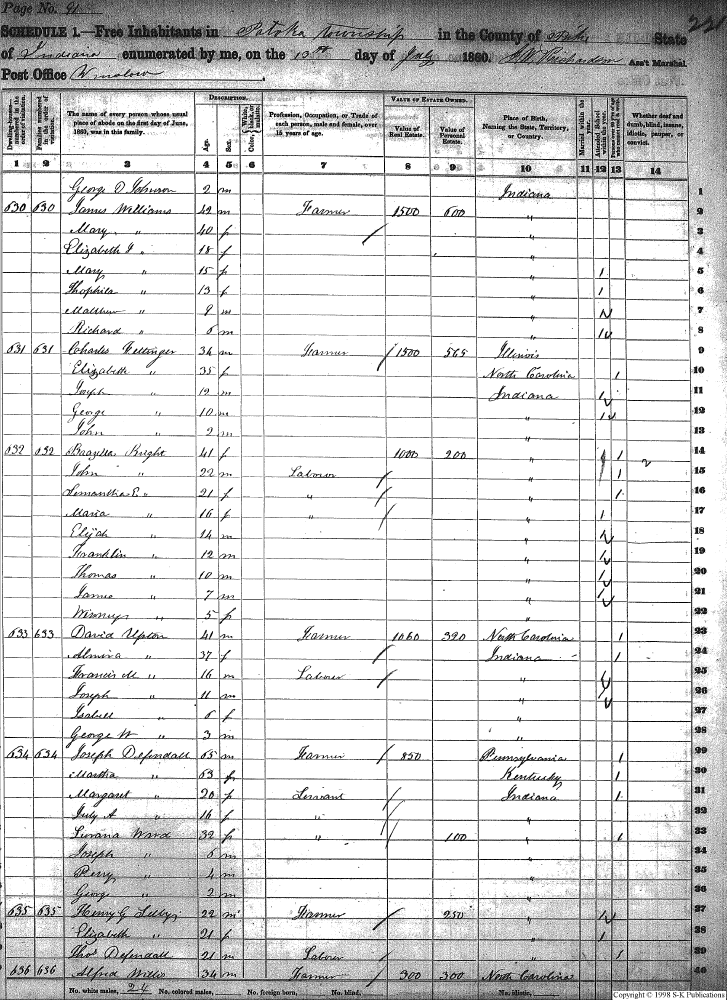 Page No. 91
SCHEDULE 1.—Free Inhabitants in Patoka Township in the County of Pike State
of Indiana enumerated by me, on the 13th day of July 1860. Ass't Marshal.
Post Office Winslow
Dwelling-houses numbered in the order of visitation.
Families numbered in the order of visitation.
The name of every person whose usual place of abode on the first day of June, 1860, was in this family.
DESCRIPTION.
Age.
Sex.
Profession, Occupation, or Trade of each person, male and female, over 15 years of age.
VALUE OF ESTATE OWNED.
Value of Real Estate.
Value of Personal Estate.
Place of Birth, Naming the State, Territory, or Country.
Married within the year.
Attended School within the year.
Whether deaf and dumb, blind, insane, idiotic, pauper, or convict.
1 2 3 4 5 6 7 8 9 10 11 12 13 14
George D Johnson 2 m Indiana 1
630 630 James Williams 42 m Farmer 1500 600 " 2
Mary " 40 f / " 3
Elizabeth " 18 f " 4
Mary " 15 f " 1 5
Thophila " 13 f " 1 6
Matthew " 9 m " 7
Richard " 6 m " 8
631 631 Charles 34 m Farmer / 1500 565 Illinois 9
Elizabeth " 35 f North Carolina 1 10
Joseph " 12 m Indiana 11
George " 10 m " 12
John " 2 m " 13
632 632 Knight 41 f 1000 200 " 1 14
John " 22 m Labourer / " 1 15
" 21 f " / " 1 16
Maria " 16 f " / " 1 17
Elijah " 14 m " 18
Franklin " 12 m " 19
Thomas " 10 m " 20
James " 7 m " 21
" 5 f " 22
633 633 David Upton 41 m Farmer 1060 390 North Carolina 1 23
Almira " 37 f / Indiana 1 24
Francis M " 16 m Laborer / " 25
Joseph " 11 m " 26
Isabell " 6 f " 27
George W " 3 m " 28
634 634 Joseph Defendall 65 m Farmer / 850 Pennsylvania 1 29
Martha " 63 f Kentucky 1 30
Margaret " 20 f Servant / Indiana 1 31
July A " 16 f " / " 32
Ward 32 f " / 100 " 1 33
Joseph " 6 m " 34
Perry " 4 m " 35
George " 2 m " 36
635 635 Henry G Selby 22 m Farmer / 250 " 37
Elizabeth " 21 f " 1 38
Thos Defendall 21 m Laborer / " 1 39
636 636 Alfred Willis 34 m Farmer / 300 300 North Carolina 40
No. white males, 24 No. colored males, No. foreign born, No. blind, No. idiotic,
Copyright © 1998 S-K Publications